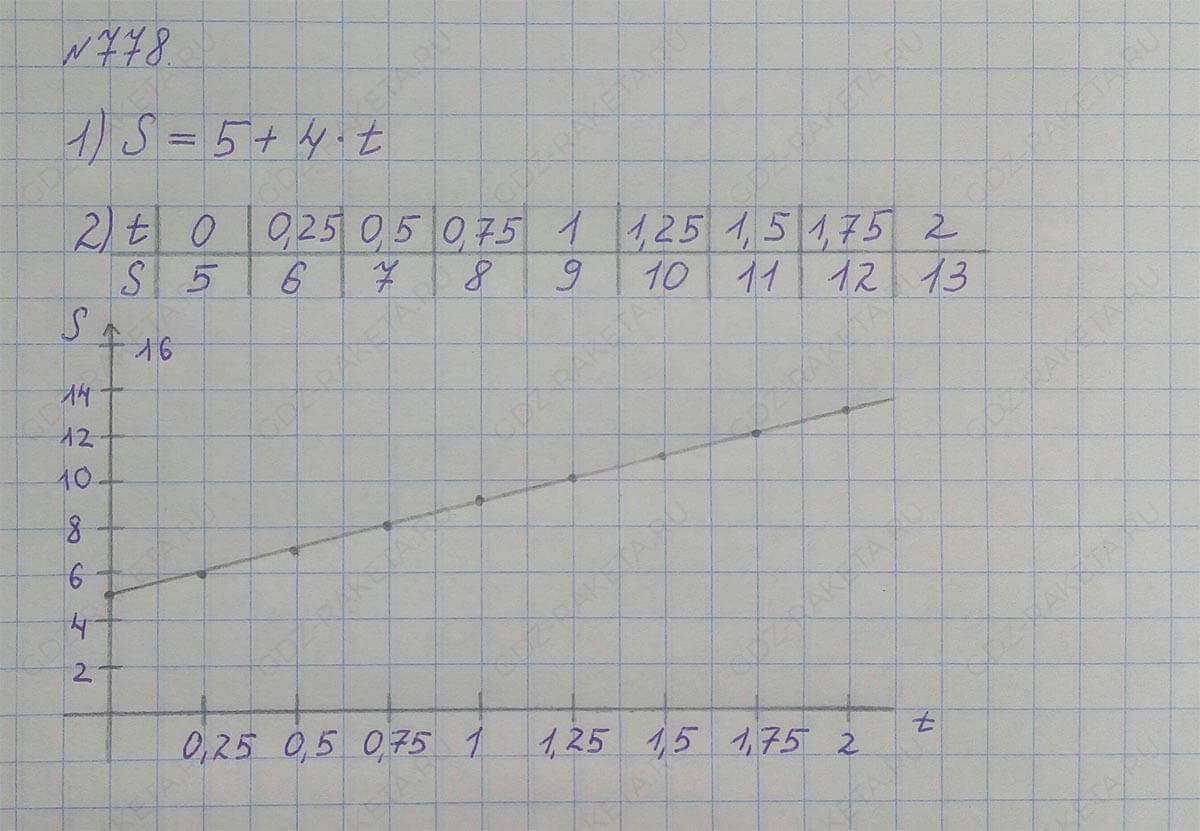 №778.
1) S = 5 + 4 · t
2) t 0 0,25 0,5 0,75 1 1,25 1,5 1,75 2
S 5 6 7 8 9 10 11 12 13
S
16
14
12
10
8
6
4
2
0,25 0,5 0,75 1 1,25 1,5 1,75 2 t
GDZ-RAKETA.RU